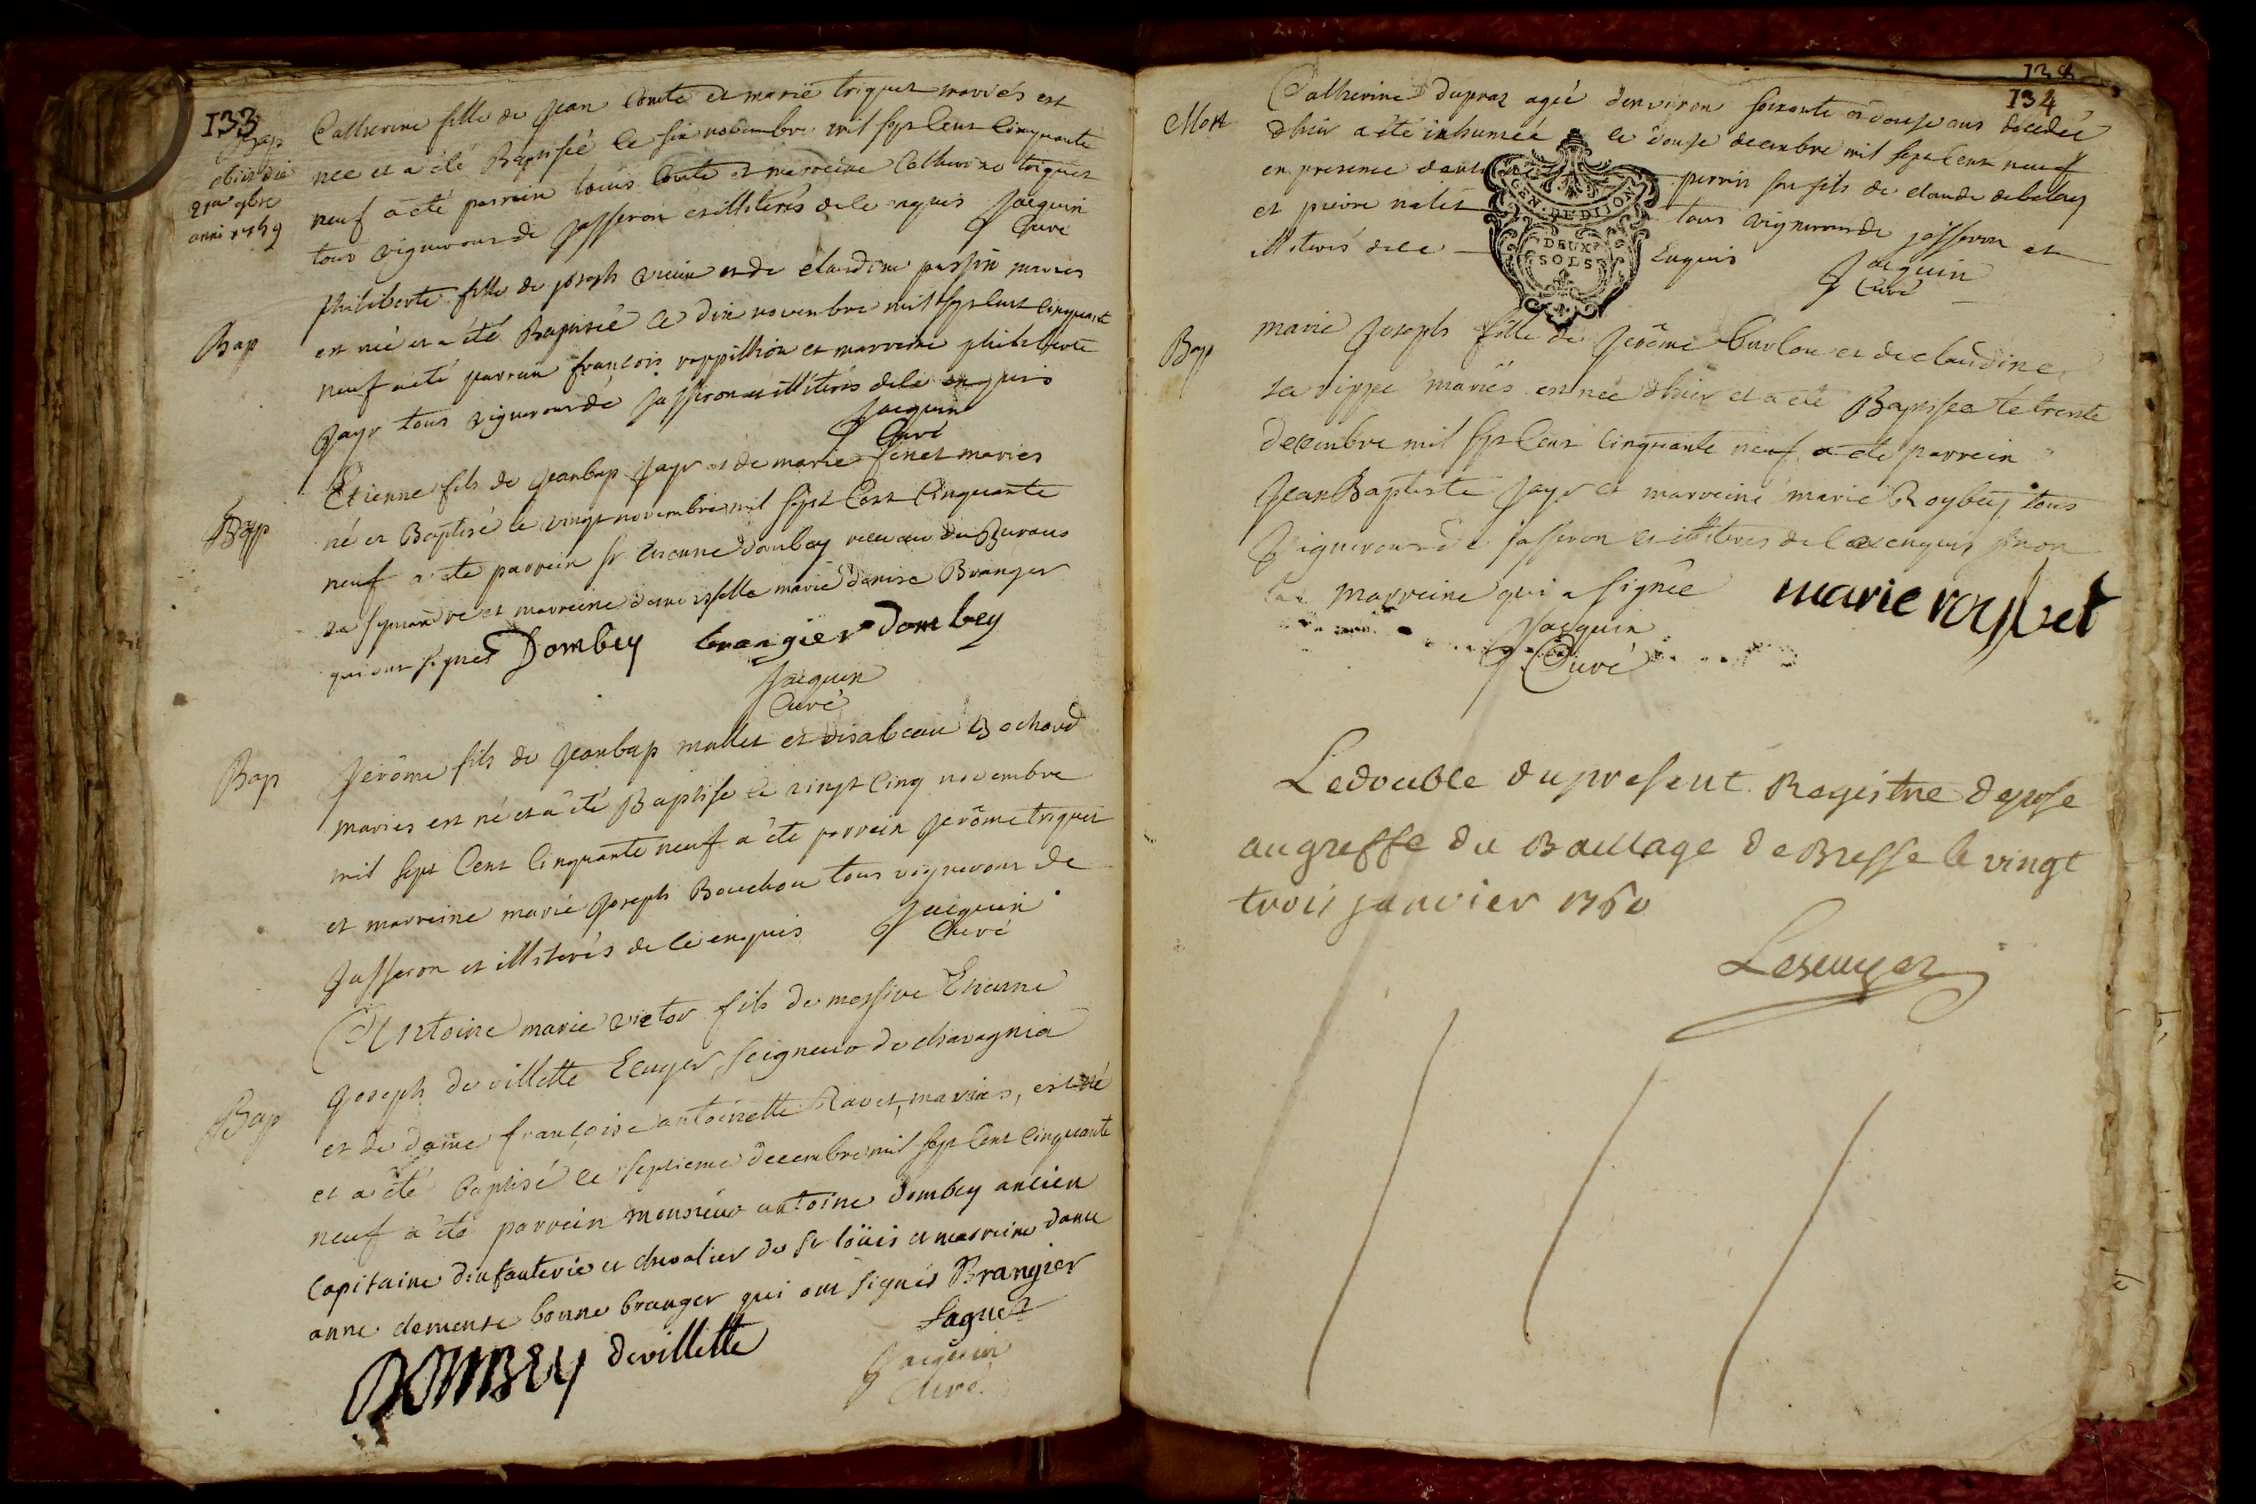 133
Bap
obiit die
21a 9bre
anni 1759
Catherine fille de Jean Conte et marie triquet mariés est
nee et a été Baptisée le six novembre mil sept Cent Cinquante
neuf a été parrein louis Conte et marreine Catherine triquet
tous vignerons de Jasseron et illiterés de ce enquis Jacquin
Curé
Bap
philiberte fille de joseph et de claudine mariés
est née et a été Baptisée le dix novembre mil sept Cent Cinquante
neuf a été parrain françois et marreine philiberte
Jayr tous vignerons de Jasseron et illiterés de ce enquis
Jacquin
Curé
Bap
Etienne fils de Jeanbap Jayr et de marie mariés
né et Baptisé le vingt novembre mil sept Cent Cinquante
neuf a été parrein sr Etienne dombey receveur du Bureau
de et marreine demoisselle marie denise Branger
qui ont signés Dombey brangier dombey
Jacquin
Curé
Bap
Jerôme fils de Jeanbap mallet et disabeau Bochard
mariés est né et a été Baptise le vingt Cinq novembre
mil sept Cent Cinquante neuf a été parrein Jerôme triquet
et marreine marie Joseph Bouchou tous vignerons de
Jasseron et illiterés de ce enquis Jacquin
Curé
Bap
Antoine marie victor fils de messire Etienne
Joseph de villette Ecuyer, seigneur de chavagnia
et de dame françoise antoinette Ravet, mariés, est né
et a été baptisé le septieme decembre mil sept Cent Cinquante
neuf a été parrein monsieur antoine dombey ancien
Capitaine dinfanterie et chevalier de St loüis et marreine dame
anne clemence bonne branger qui ont signés Brangier
Saguet
DOMBEY devillette
Jacquin
Curé
134
Mort
Catherine dupraz agée denviron soixante et douse ans decedée
dhier a été inhumée le douse decembre mil sept Cent neuf
en presence perrin son fils de claude
et pierre tous vignerons de jasseron et
illiterés de ce enquis Jacquin
Curé
GEN. DE DIJON
DEUX
SOLS
Bap
marie Joseph fille de Jerôme burlou et de claudine
la rippe mariés est née dhier et a été Baptisée le trente
decembre mil sept Cent Cinquante neuf a été parrein
Jean Baptiste Jayr et marreine marie Roybey tous
Vignerons de jasseron et illiteres de ce enquis sinon
la marreine qui a signée marie roybet
Jacquin
Curé
Le double du present Registre depose
au greffe du Baillage de Bresse le vingt
trois janvier 1760